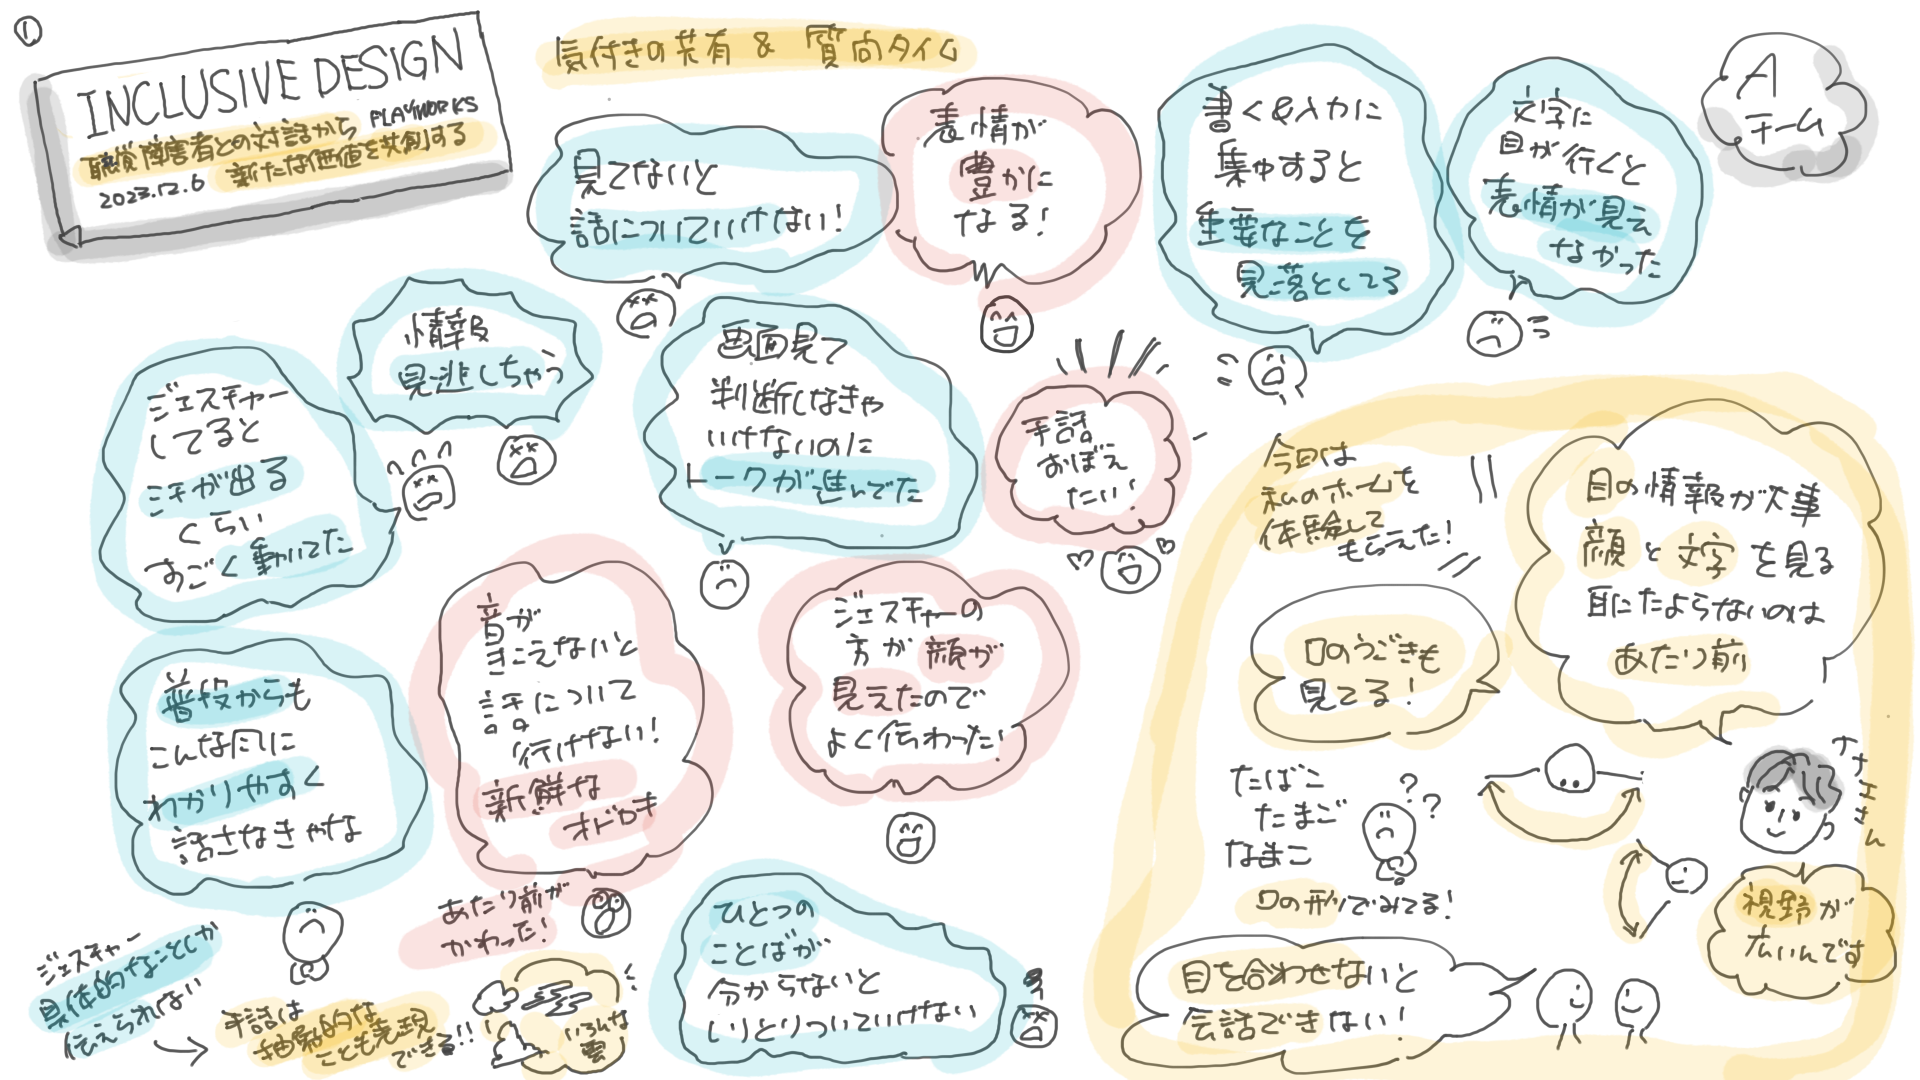 ①
INCLUSIVE DESIGN
PLAYWORKS
聴覚障害者との対話から
新たな価値を共創する
2023.12.6
気付きの共有 & 質向タイム
Aチーム
見てないと
話についていけない！
表情が
豊かに
なる！
書く&入力に
集中すると
重要なことを
見落としてる
文字に
目が行くと
表情が見え
なかった
ジェスチャー
してると
汗が出る
くらい
すごく動いてた
情報
見逃しちゃう
画面見て
判断しなきゃ
いけないのに
トークが進んでた
手話
おぼえ
たい！
普段からも
こんな風に
わかりやすく
話さなきゃな
音が
きこえないと
話について
行けない！
新鮮な
オドロキ
あたり前が
かわった！
ジェスチャーの
方が顔が
見えたので
よく伝わった！
ジェスチャー
具体的なことしか
伝えられない
手話は
抽象的な
ことも表現
できる!!
いろんな
雲
ひとつの
ことばが
分からないと
しりとりついていけない
今回は
私のホームを
体験して
もらえた！
目の情報が大事
顔と文字を見る
耳にたよらないのは
あたり前
口のうごきも
見てる！
たばこ
たまご
なまこ
??
口の形でみてる！
ナナエさん
視野が
広いんです
目を合わせないと
会話できない！